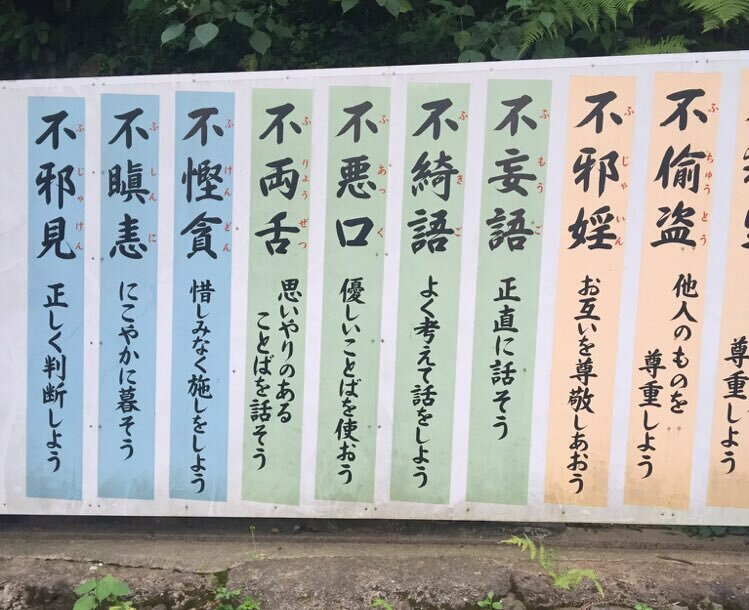 尊重しよう
不偷盗
ふちゅうとう
他人のものを
尊重しよう
不邪婬
ふじゃいん
お互いを尊敬しあおう
不妄語
ふもうご
正直に話そう
不綺語
ふきご
よく考えて話をしよう
不悪口
ふあっく
優しいことばを使おう
不両舌
ふりょうぜつ
思いやりのある
ことばを話そう
不慳貪
ふけんどん
惜しみなく施しをしよう
不瞋恚
ふしんに
にこやかに暮そう
不邪見
ふじゃけん
正しく判断しよう